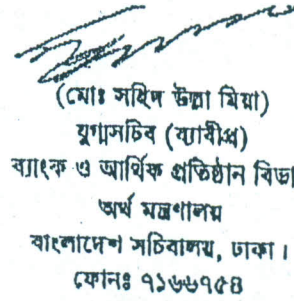 (মোঃ সহিদ উল্লা মিয়া)
যুগ্মসচিব (ব্যাবীঅ)
ব্যাংক ও আর্থিক প্রতিষ্ঠান বিভা
অর্থ মন্ত্রণালয়
বাংলাদেশ সচিবালয়, ঢাকা।
ফোনঃ ৭১৬৬৭৫৪